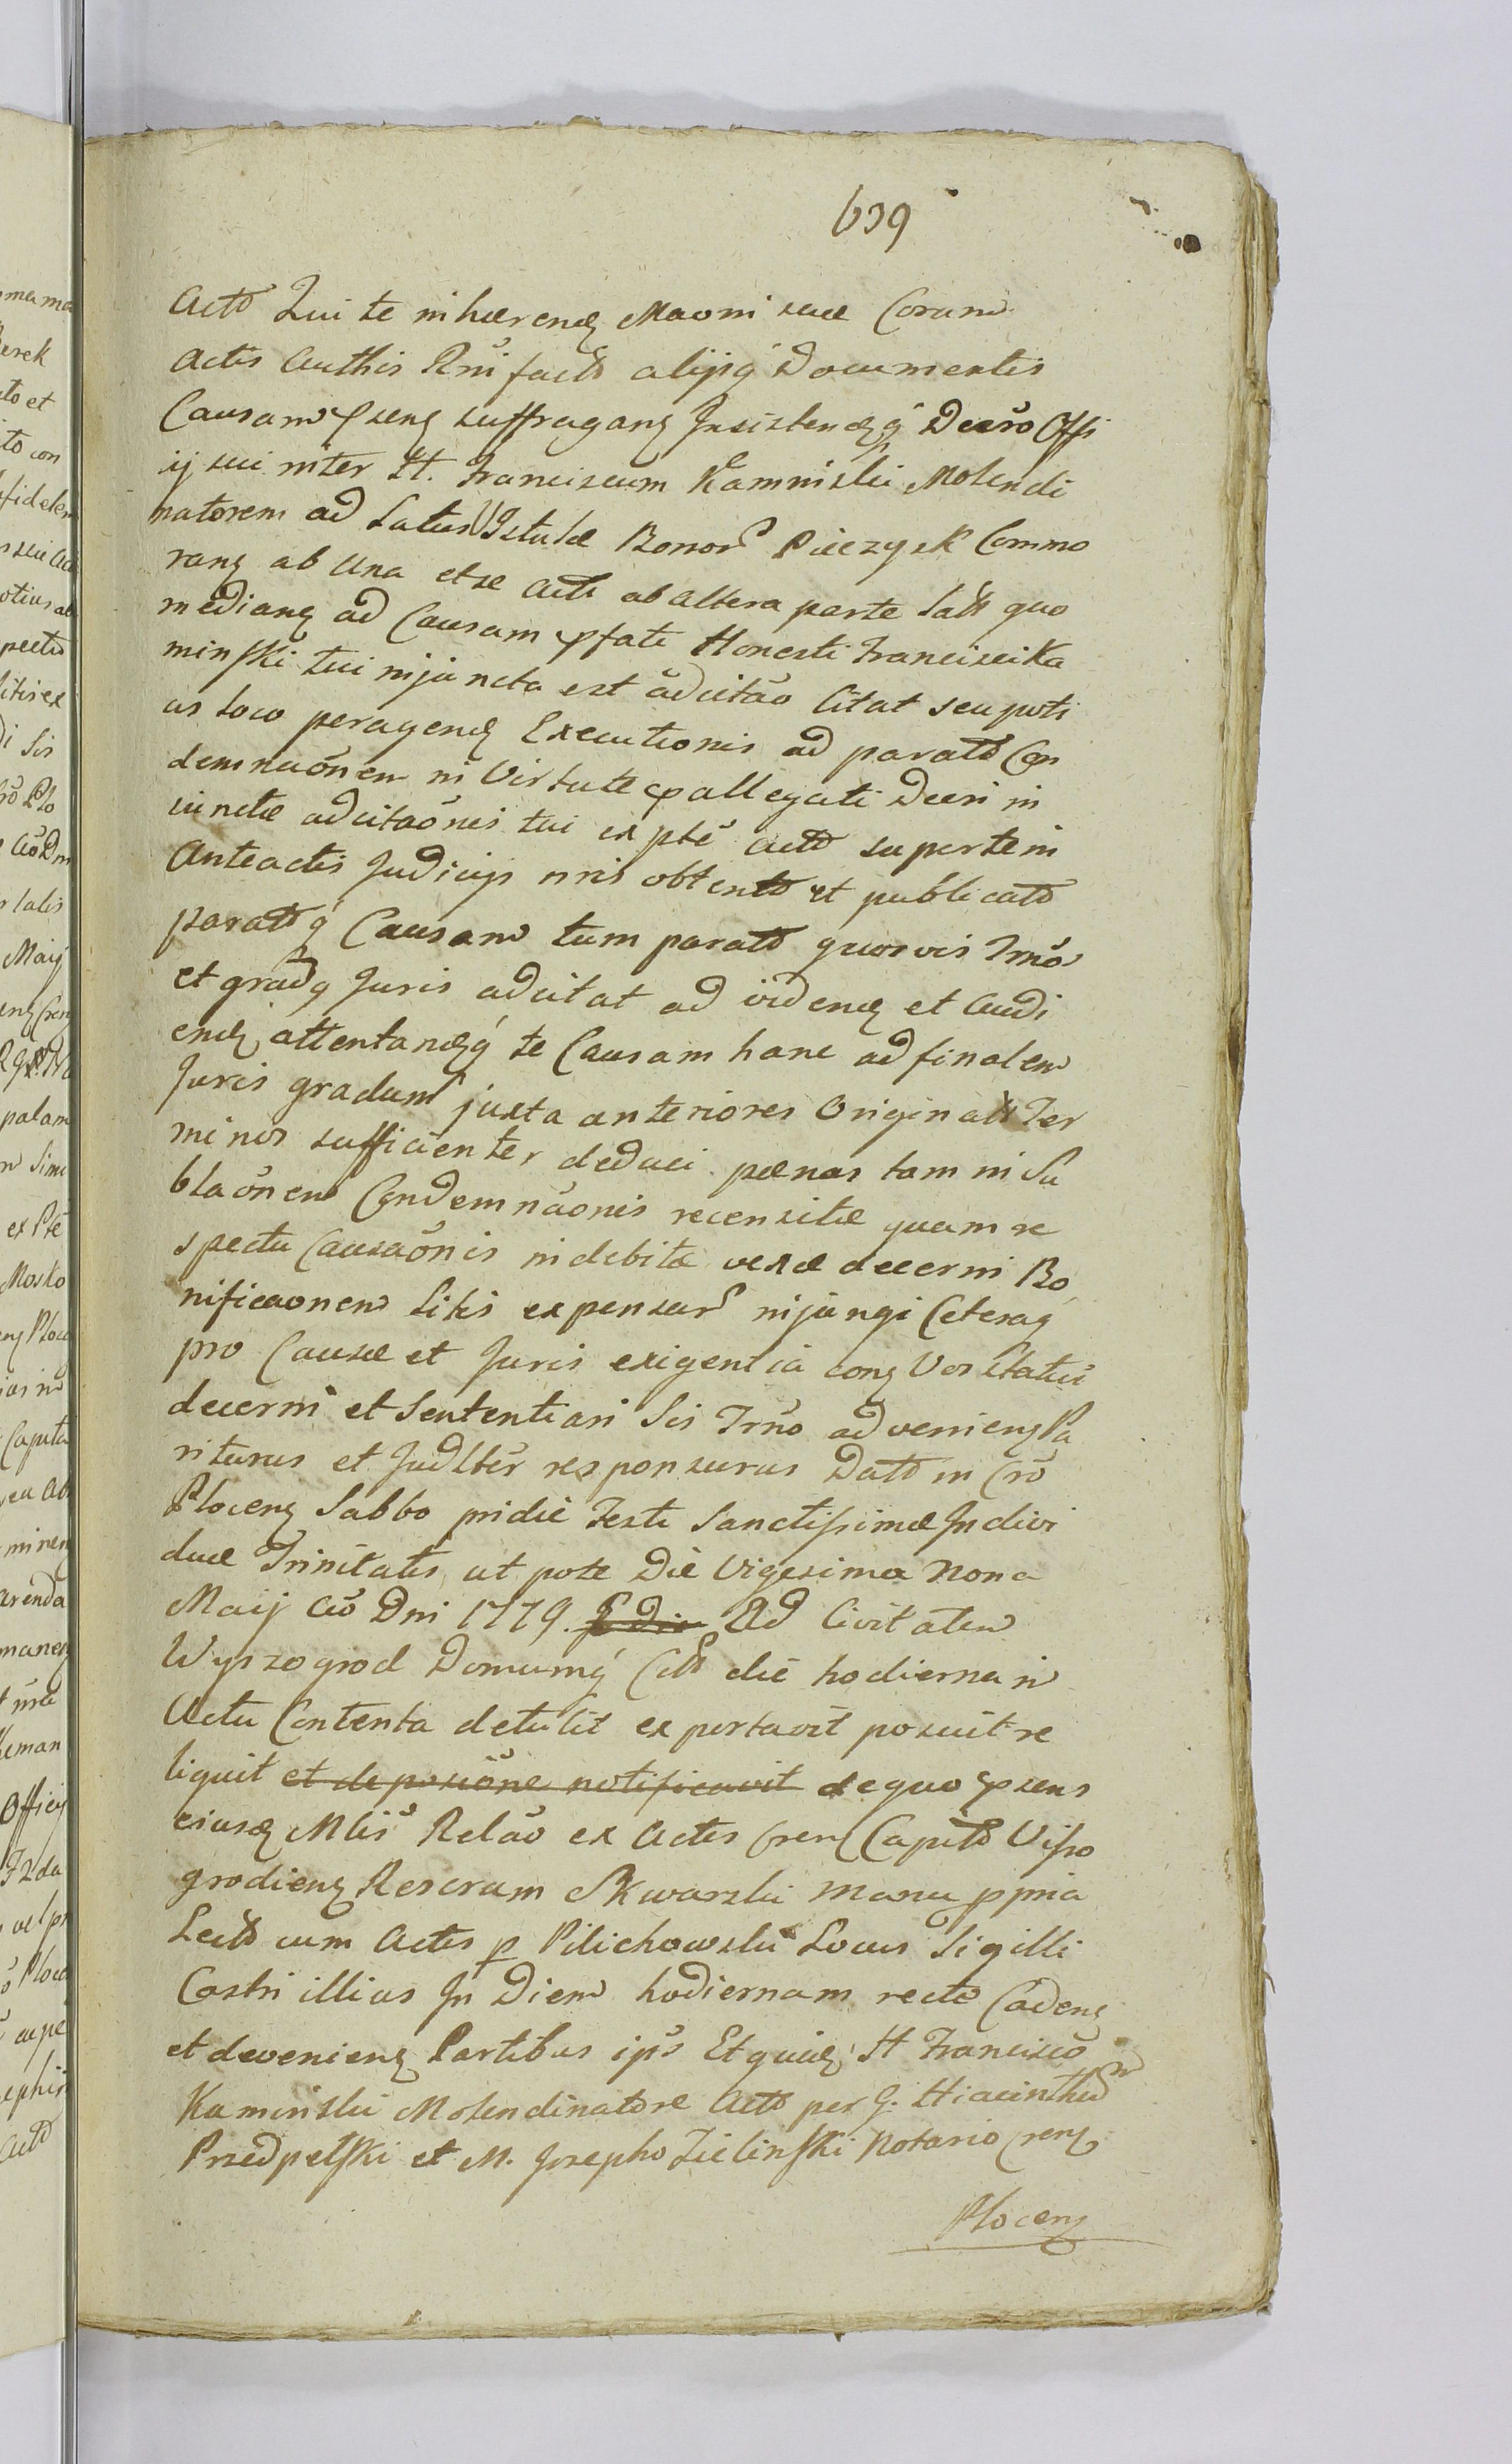 639
Actō Qui te inhærendȝ Maōni suæ Coram
Actis Authis Rm̄i factō alijsq́ Documentis
Causam pnsenȝ suffraganȝ Insistendȝq́ Decr̄o Offi
ij sui inter Ht. Franciscum Kamniski Molendi
natorem ad Latus Istulæ Bonor Pieczysk Commo
ranȝ ab una et se Acte ab altera parte Latō quo
medianȝ ad Causam pfati Honesti Francisci Ka
minski tui injuncta est ādcitāo Citat seu poti
us loco peragendȝ Executionis ad paratō Con
demnāōnem in Virtute pallegati Decri in
iunctæ adcitāōnis tui ex ptē actō superte in
Anteactis Judicijs nris obtentō et publicatō
paratōq́ Causam tum paratō quosvis Trnōs
et gradȝ Juris adcitat ad videndȝ et Audi
endȝ, attentandȝq́ te Causam hanc ad finalem
Juris gradum juxta anteriores Originalō Ter
minos sufficienter deduci pænas tam in Su
blāōnem Condemnāonis recensitæ quam re
spectu Causaōnis indebitæ vexæ decerni Bo
nificaonem Litis expensar injungi Ceteraq
pro Causæ et Juris exigentia conȝ Vos Statui
decerni et Sententiari Sis Trn̄o advenienȝ Pa
riturus et Judlter responsurus Datō in Cr̄o
Plocenȝ Sabbo pridie Festi Sanctissimæ Indivi
duæ Trinitatis, ut pote Die Vigesima Nona
Maij Aō Dni 1779. Ad Civitatem
Wyszogrod Domumq́ Citō die hodierna in
Actu Contenta detulit exportavit posuit re
liquit et deposiōne notificavit de quo psens
eiusdȝ Mlis Relāo ex Actis CrenȝCapitō Visso
grodienȝ Rescram Skwarski manu ppria
Lectō cum Actis p Pilichowski Locus Sigilli
Castri illius In Diem hodiernam recte Cadenȝ
et devenienȝ Partibus ips̄ Et quidȝ Ht Francisco
Kaminski Molendinatore Actō per G. Hiacinthum
Przedpelski et M. Josepho Zielinski Notario Crenȝ
Plocenȝ